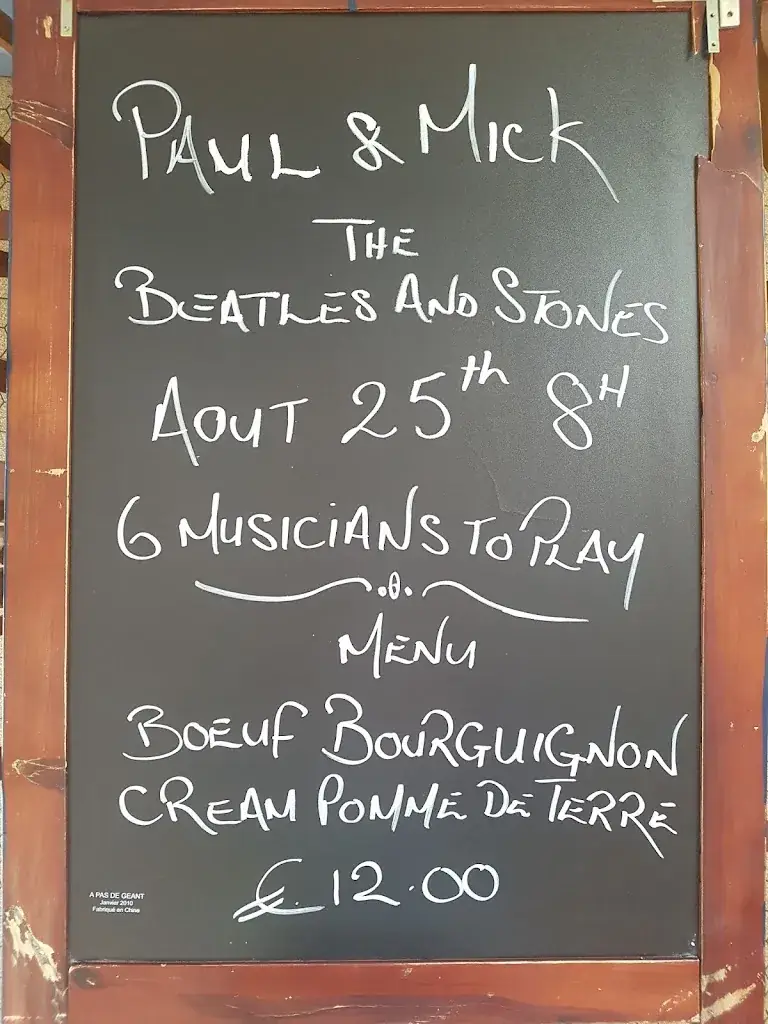 PAUL & MICK
THE
BEATLES AND STONES
AOUT 25th 8H
6 MUSICIANS TO PLAY
MENU
BOEUF BOURGUIGNON
CREAM POMME DE TERRE
€12.00
A PAS DE GEANT
Janvier 2010
Fabriqué en Chine